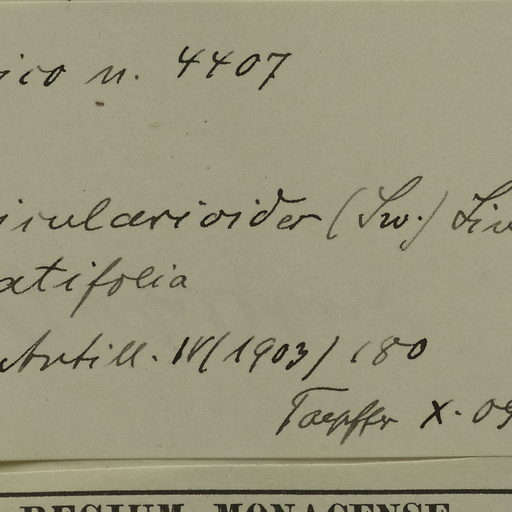 ico n. 4407
icularioides (Sw.) Liv
atifolia
Antill. IV (1903) 180
Toepffer X. 09
REGIUM MONACENSE